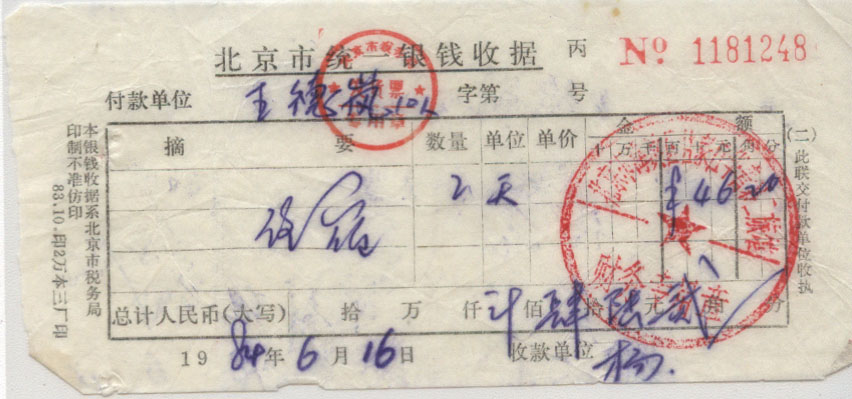 北京市统一银钱收据 丙 Nº 1181248
付款单位 王德岚 字第 号
摘 要 数量 单位 单价 金 额
十 万 千 百 十 元 角 分
住宿 2 天 ¥ 46 20
总计人民币(大写) 拾 万 仟 佰 肆 拾 陆 元 贰 角 分
1984年6月16日 收款单位 杨
本银钱收据系北京市税务局
印制不准仿印
83.10.印2万本三厂印
(二)此联交付款单位收执
财务专用章